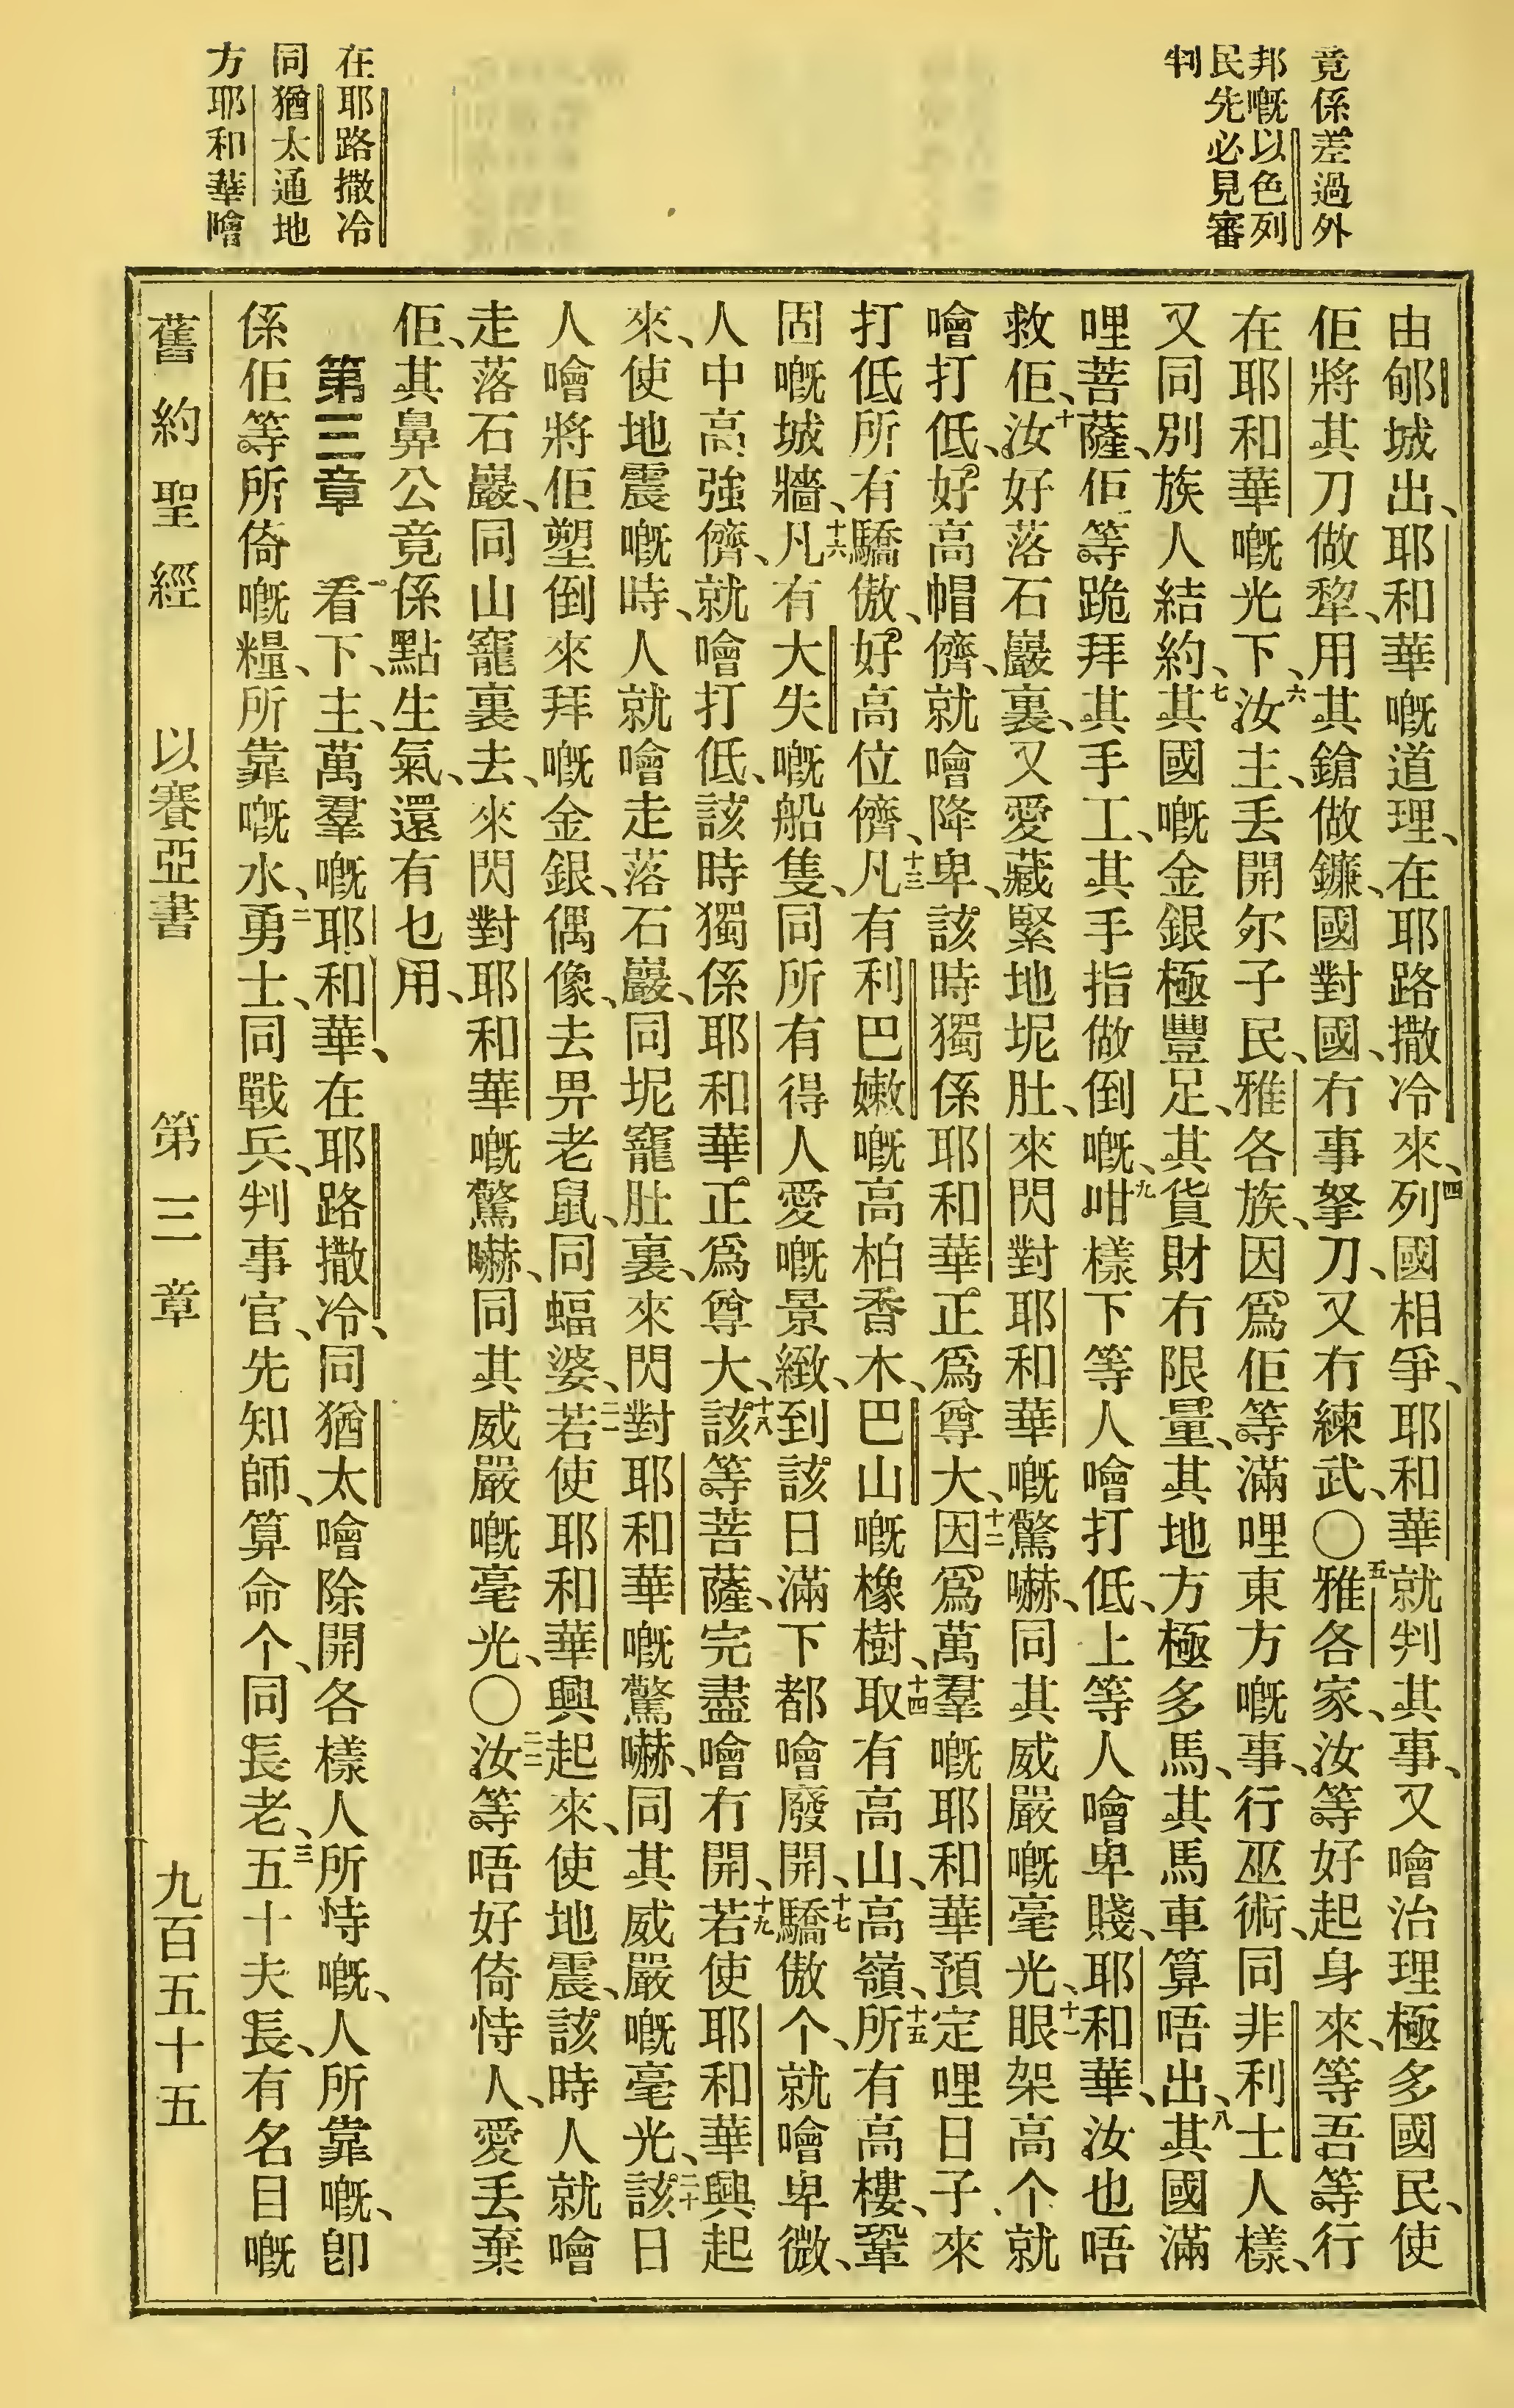 竟係差過外
邦嘅以色列
民先必見審
判
在耶路撒冷
同猶太通地
方耶和華噲
由郇城出、耶和華嘅道理、在耶路撒冷來、四列國相爭、耶和華就判其事、又噲治理極多國民、使
佢將其刀做犂、用其鎗做鐮、國對國、冇事拏刀、又冇練武、〇五雅各家、汝等好起身來、等吾等行
在耶和華嘅光下、六汝主、丟開尔子民、雅各族、因為佢等滿哩東方嘅事、行巫術、同非利士人樣、
又同別族人結約、七其國嘅金銀極豐足、其貨財冇限量、其地方極多馬、其馬車算唔出、八其國滿
哩菩薩、佢等跪拜其手工、其手指做倒嘅、九咁樣下等人噲打低、上等人噲卑賤、耶和華、汝也唔
救佢、十汝好落石巖裏、又愛藏緊地坭肚、來閃對耶和華嘅驚嚇、同其威嚴嘅毫光、十一眼架高个就
噲打低、好高帽儕、就噲降卑、該時獨係耶和華正為尊大、十二因為萬羣嘅耶和華預定哩日子來
打低所有驕傲、好高位儕、十三凡有利巴嫩嘅高柏香木、巴山嘅橡樹、十四取有高山、高嶺、十五所有高樓、鞏
固嘅城牆、十六凡有大失嘅船隻、同所有得人愛嘅景緻、到該日滿下都噲廢開、十七驕傲个、就噲卑微、
人中高強儕、就噲打低、該時獨係耶和華正為尊大、十八該等菩薩、完盡噲冇開、十九若使耶和華興起
來、使地震嘅時、人就噲走落石巖、同坭窿肚裏、來閃對耶和華嘅驚嚇、同其威嚴嘅毫光、二十該日
人噲將佢塑倒來拜嘅金銀、偶像、去畀老鼠、同蝠婆、二一若使耶和華興起來、使地震、該時人就噲
走落石巖、同山窿裏去、來閃對耶和華嘅驚嚇、同其威嚴嘅毫光、〇二二汝等唔好倚恃人、愛丟棄
佢、其鼻公竟係點生氣、還有乜用、
第三章 一看下、主、萬羣嘅耶和華、在耶路撒冷、同猶太噲除開各樣人所恃嘅、人所靠嘅、卽
係佢等所倚嘅糧、所靠嘅水、二勇士、同戰兵、判事官、先知師、算命个、同長老、三五十夫長、有名目嘅
舊約聖經 以賽亞書 第三章 九百五十五